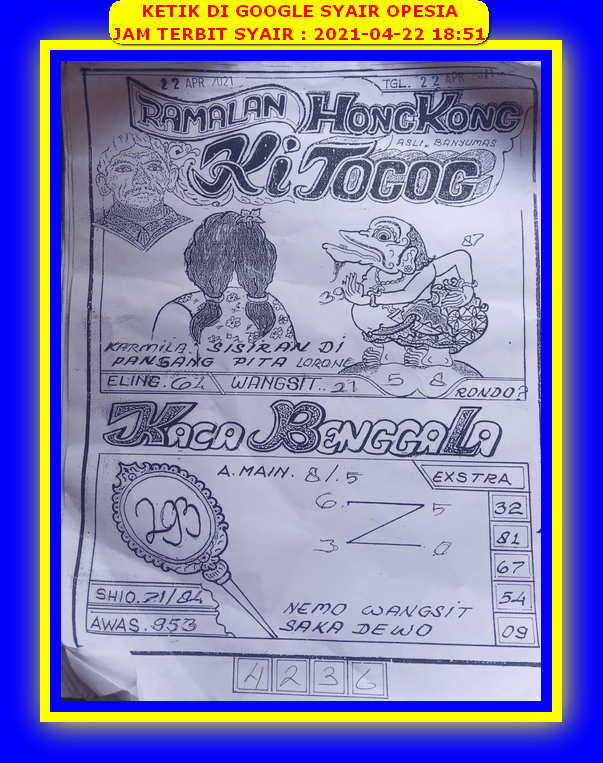 KETIK DI GOOGLE SYAIR OPESIA
JAM TERBIT SYAIR : 2021-04-22 18:51
22 APR 2021
TGL. 22 APR
RAMALAN HONGKONG
ASLI. BANYUMAS
KI TOGOG
87
39
KARMILA. SISIRAN DI
PANSANG PITA LORONG
ELING. 64 WANGSIT.. 21
5 8
RONDO?
KACA BENGGALA
A. MAIN. 8/.5
EXSTRA
293
6. 5
3 0
32
81
67
54
09
SHIO. 21/84
AWAS. 953
NEMO WANGSIT
SAKA DEWO
4 2 3 6